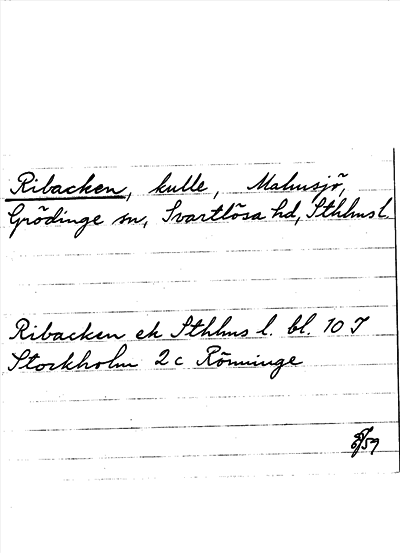 Ribacken, kulle, Malmsjö,
Grödinge sn, Svartlösa hd, Sthlms l.
Ribacken ek Sthlms l. bl. 10 I
Stockholm 2 c Rönninge